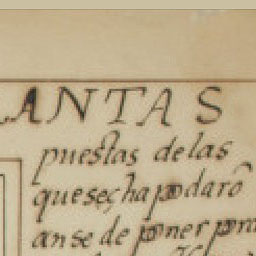 LANTAS
puestas de las
que se ha podarõ
an se de poner para